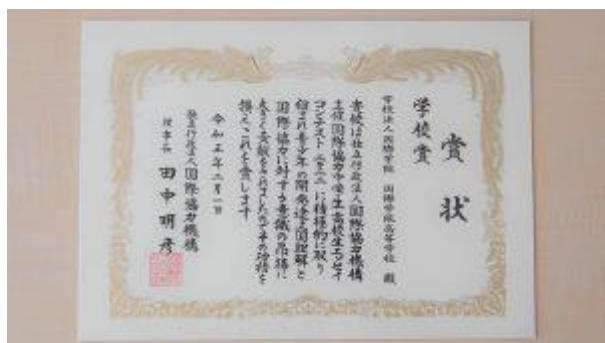 賞状
学校賞
学校法人国際学院 国際学院高等学校 殿
貴校は独立行政法人国際協力機構
主催国際協力中学生高校生エッセイ
コンテスト二〇二二に積極的に取り
組まれ青少年の開発途上国理解と
国際協力に対する意識の昂揚に
大きく貢献をされましたのでその功績を
讃えこれを賞します
令和五年二月一日
独立行政法人国際協力機構
理事長 田中明彦